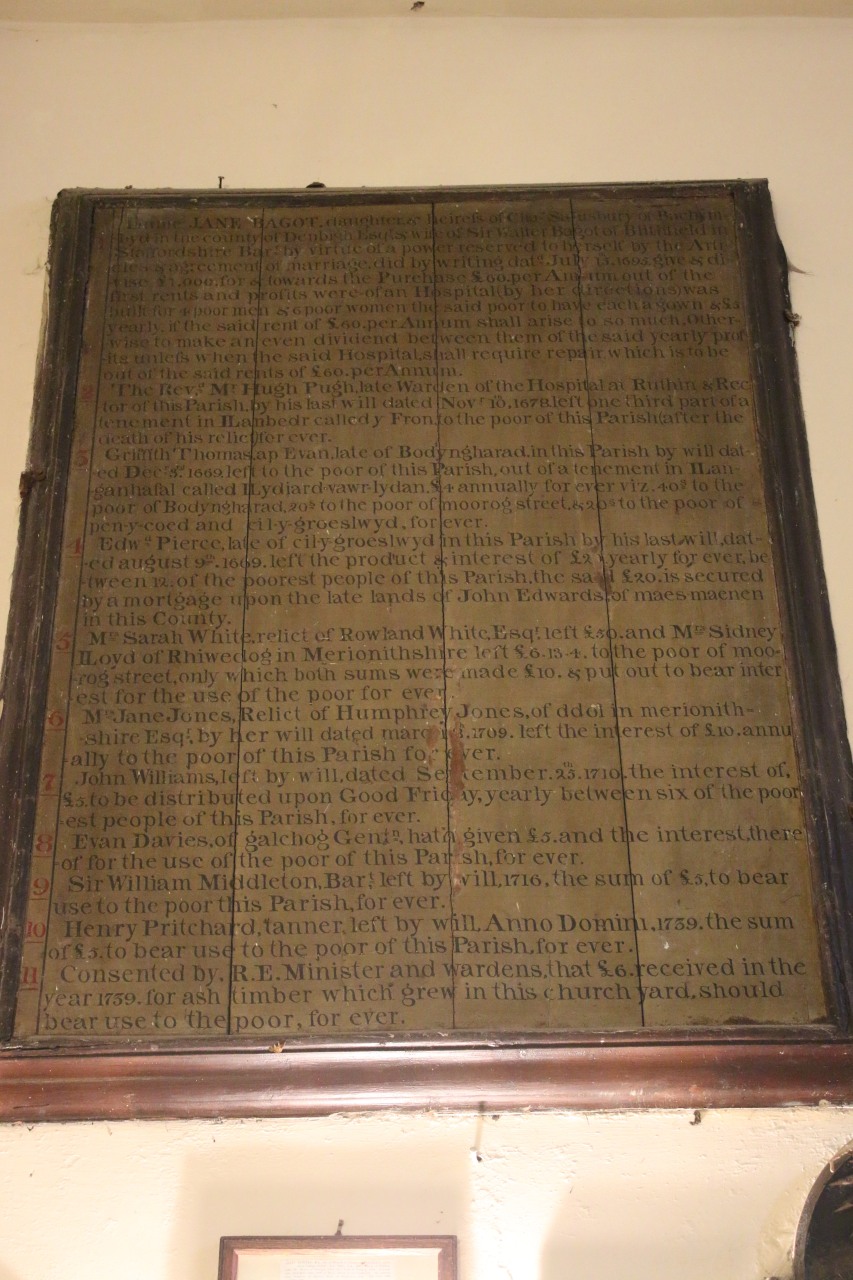 Dame JANE BAGOT, daughter & heiress of Chas. Salusbury of Bachym-
byd in the county of Denbigh Esqr. & wife of Sir Walter Bagot of Blithfield in
Staffordshire Bart. by virtue of a power reserved to herself by the Arti-
cles & agreement of marriage, did by writing datd. July 15. 1695. give & di-
vise £1,000. for & towards the Purchase £.60. per Annum. out of the
first rents and profits were of an Hospital (by her directions) was
built for 4 poor men & 6 poor women the said poor to have each a gown & £.5
yearly, if the said rent of £.60. per Annum shall arise to so much, Other-
wise to make an even dividend between them of the said yearly prof-
its unless when the said Hospital, shall require repair, which is to be
out of the said rents of £.60. per Annum.
2 The Revd. Mr. Hugh Pugh, late Warden of the Hospital at Ruthin & Rec
tor of this Parish, by his last will dated Novr. 10, 1678. left one third part of a
tenement in ILanbedr called y Fron, to the poor of this Parish (after the
death of his relict) for ever.
3 Griffith Thomas, ap Evan, late of Bodyngharad, in this Parish by will dat-
ed Decr. 1669. left to the poor of this Parish, out of a tenement in ILan-
ganhafal called ILydiard-vawr-lydan, £.4 annually for ever viz. 40s. to the
poor of Bodyngharad, 20s. to the poor of moorog street, & 20s. to the poor of
pen-y-coed and cil-y-groeslwyd, for ever.
4 Edwd. Pierce, late of cil-y-groeslwyd in this Parish by his last will, dat-
ed august 9th. 1669. left the product & interest of £2 yearly for ever, be
tween 12. of the poorest people of this Parish, the said £20. is secured
by a mortgage upon the late lands of John Edwards of maes-maenen
in this County.
5 Mrs. Sarah White, relict of Rowland White, Esqr. left £.50. and Mrs. Sidney
ILoyd of Rhiwedog in Merionithshire left £.6. 13-4. to the poor of moo-
rog street, only which both sums were made £10. & put out to bear inter
est for the use of the poor for ever.
6 Mrs. Jane Jones, Relict of Humphrey Jones, of ddol in merionith-
shire Esqr. by her will dated 1709. left the interest of £.10. annu
ally to the poor of this Parish for ever.
7 John Williams, left by will, dated September. 25th. 1710. the interest of,
£.5. to be distributed upon Good Friday, yearly between six of the poor
est people of this Parish, for ever.
8 Evan Davies, of galchog Gentn. hath given £.5. and the interest, there
of for the use of the poor of this Parish, for ever.
9 Sir William Middleton, Bart. left by will, 1716, the sum of £.5, to bear
use to the poor this Parish, for ever.
10 Henry Pritchard, tanner, left by will, Anno Domini, 1739. the sum
of £.5. to bear use to the poor of this Parish, for ever.
11 Consented by, R.E. Minister and wardens, that £6. received in the
year 1739. for ash timber which grew in this church yard, should
bear use to the poor, for ever.